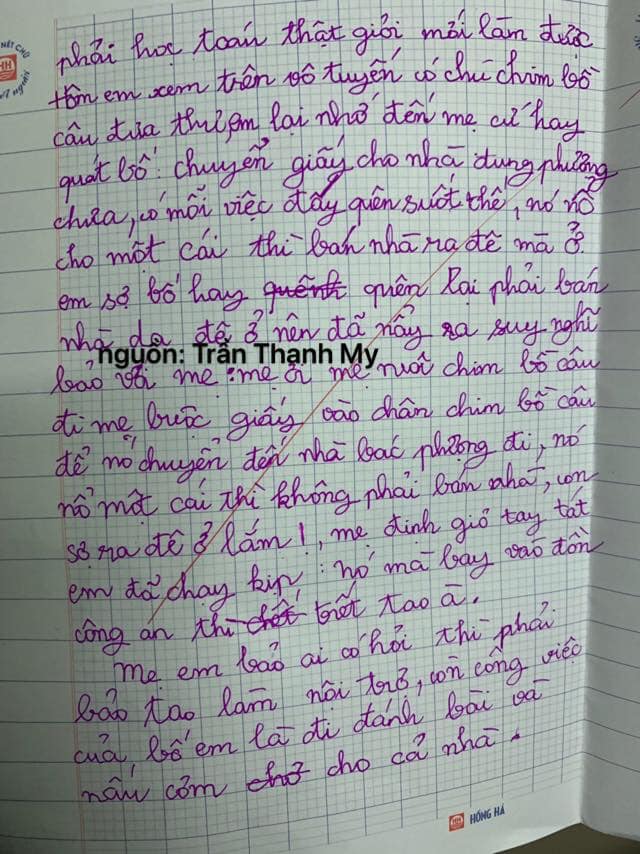 NÉT CHỮ
NẾT NGƯỜI
phải học toán thật giỏi mới làm được
tôm em xem trên vô tuyến có chú chim bồ
câu đưa thư em lại nhớ đến mẹ cứ hay
quát bố: chuyển giấy cho nhà dung phượng
chưa, có mỗi việc đấy quên suốt thế, nó nổ
cho một cái thì bán nhà ra đê mà ở.
em sợ bố hay quênh quên lại phải bán
nhà da đê ở nên đã nảy ra suy nghĩ
nguồn: Trần Thanh My
bảo với mẹ: mẹ ơi mẹ nuôi chim bồ câu
đi mẹ buộc giấy vào chân chim bồ câu
để nó chuyển đến nhà bác phượng đi, nó
nổ một cái thì không phải bán nhà, con
sợ ra đê ở lắm!, mẹ định giơ tay tát
em đã chạy kịp: nó mà bay vào đồn
công an thì chết trết tao à.
Mẹ em bảo ai có hỏi thì phải
bảo tao làm nội trợ, còn công việc
của, bố em là đi đánh bài và
nấu cơm chở cho cả nhà.
HH HỒNG HÀ